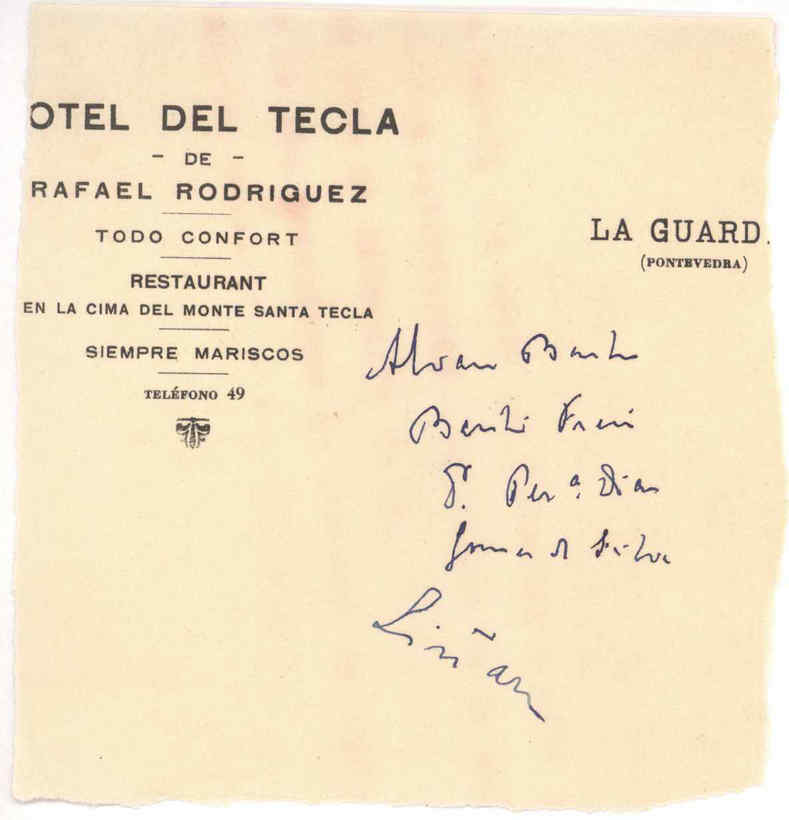 OTEL DEL TECLA
- DE -
RAFAEL RODRIGUEZ
TODO CONFORT
RESTAURANT
EN LA CIMA DEL MONTE SANTA TECLA
SIEMPRE MARISCOS
TELÉFONO 49
LA GUARD
(PONTEVEDRA)
Alvaro
Freire
Perª. Dias
Gomes da Silva
Liñan